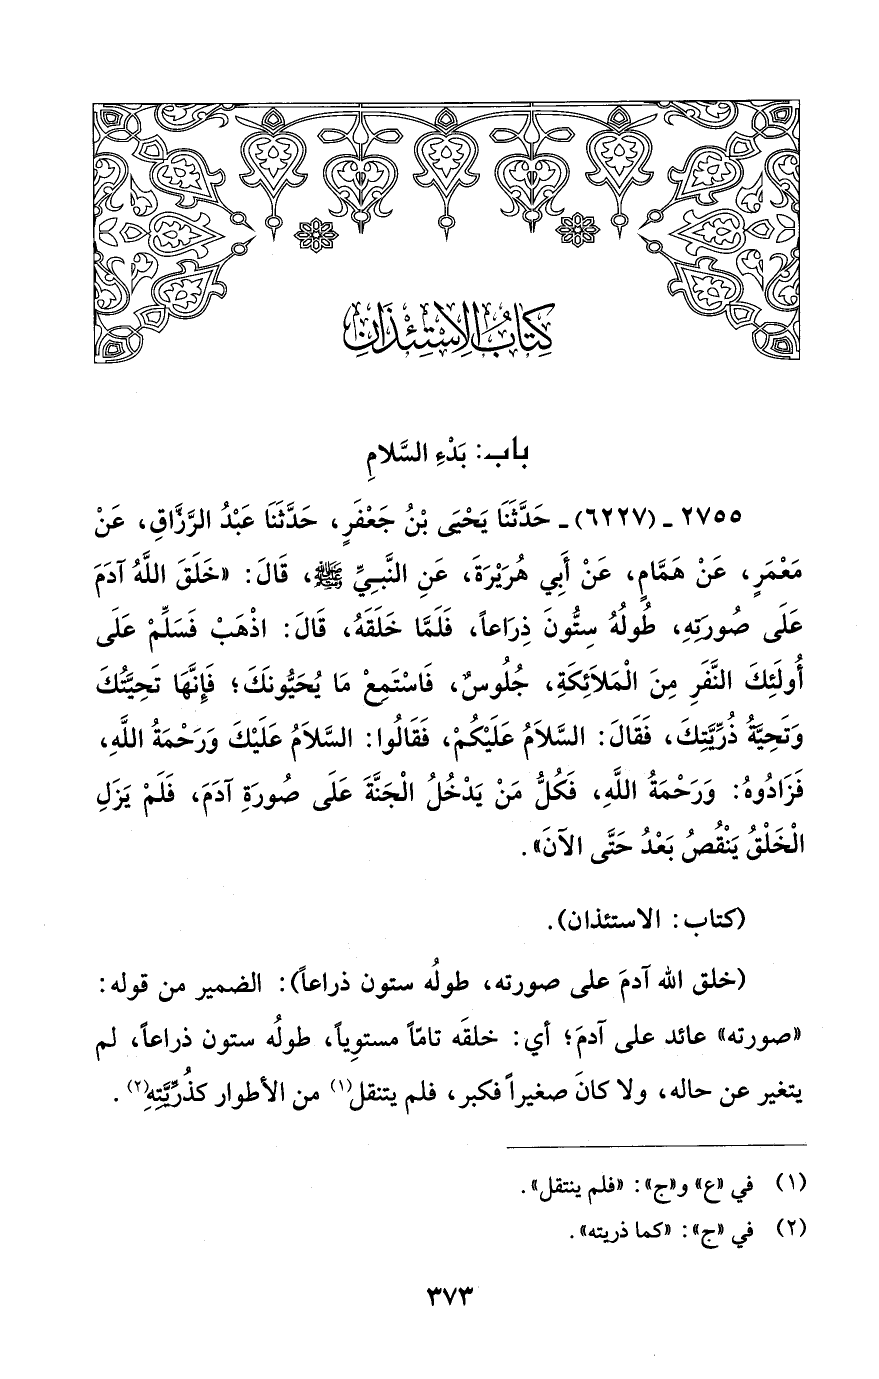 كِتَابُ الِاسْتِئْذَانِ
باب: بَدْءِ السَّلامِ
٢٧٥٥ ـ (٦٢٢٧) ـ حَدَّثَنَا يَحْيَى بْنُ جَعْفَرٍ، حَدَّثَنَا عَبْدُ الرَّزَّاقِ، عَنْ
مَعْمَرٍ، عَنْ هَمَّامٍ، عَنْ أَبِي هُرَيْرَةَ، عَنِ النَّبِيِّ ﷺ، قَالَ: «خَلَقَ اللَّهُ آدَمَ
عَلَى صُورَتِهِ، طُولُهُ سِتُّونَ ذِرَاعاً، فَلَمَّا خَلَقَهُ، قَالَ: اذْهَبْ فَسَلِّمْ عَلَى
أُولَئِكَ النَّفَرِ مِنَ الْمَلاَئِكَةِ، جُلُوسٌ، فَاسْتَمِعْ مَا يُحَيُّونَكَ؛ فَإِنَّهَا تَحِيَّتُكَ
وَتَحِيَّةُ ذُرِّيَّتِكَ، فَقَالَ: السَّلاَمُ عَلَيْكُمْ، فَقَالُوا: السَّلاَمُ عَلَيْكَ وَرَحْمَةُ اللَّهِ،
فَزَادُوهُ: وَرَحْمَةُ اللَّهِ، فَكُلُّ مَنْ يَدْخُلُ الْجَنَّةَ عَلَى صُورَةِ آدَمَ، فَلَمْ يَزَلِ
الْخَلْقُ يَنْقُصُ بَعْدُ حَتَّى الآنَ».
(كتاب: الاستئذان).
(خلق الله آدمَ على صورته، طولُه ستون ذراعاً): الضمير من قوله:
«صورته» عائد على آدمَ؛ أي: خلقَه تامّاً مستوِياً، طولُه ستون ذراعاً، لم
يتغير عن حاله، ولا كانَ صغيراً فكبر، فلم يتنقل(١) من الأطوار كذُرِّيَّتِهِ(٢).
(١) في «ع» و«ج»: «فلم ينتقل».
(٢) في «ج»: «كما ذريته».
٣٧٣